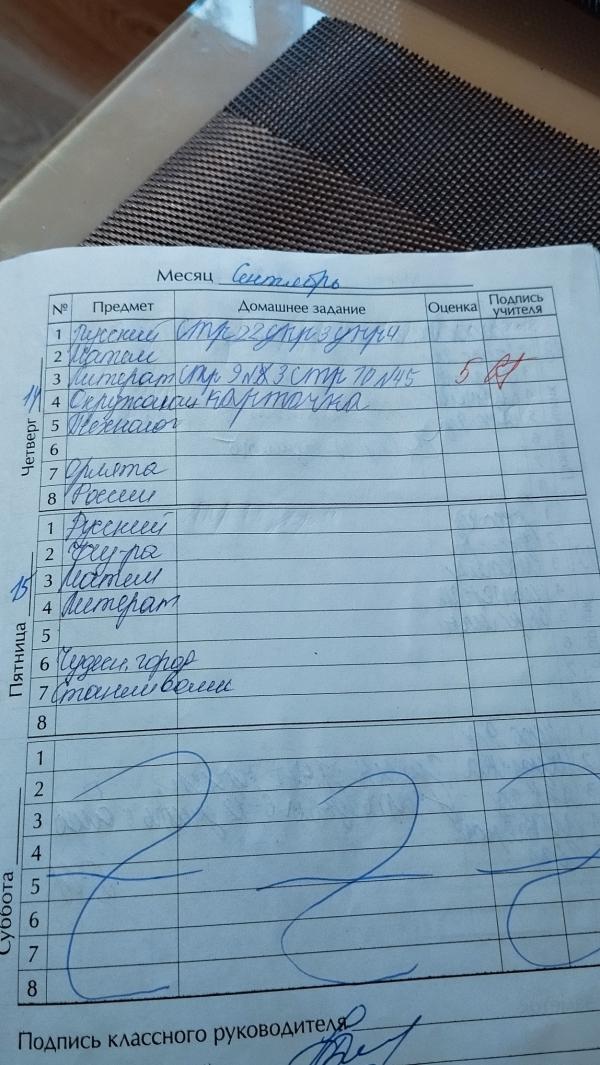 Месяц Сентябрь
№ Предмет Домашнее задание Оценка Подпись учителя
Четверг 14
1 Русский стр 22 упр 3 упр 4
2 Матем
3 Литерат стр 9 №3 стр 10 №45 5
4 Окружающ карточка
5 Технолог
6
7 Орлята
8 России
Пятница 15
1 Русский
2 Физ-ра
3 Матем
4 Литерат
5
6 Чудеси. город
7 Станем волш
8
Суббота
1
2
3
4
5
6
7
8
Подпись классного руководителя